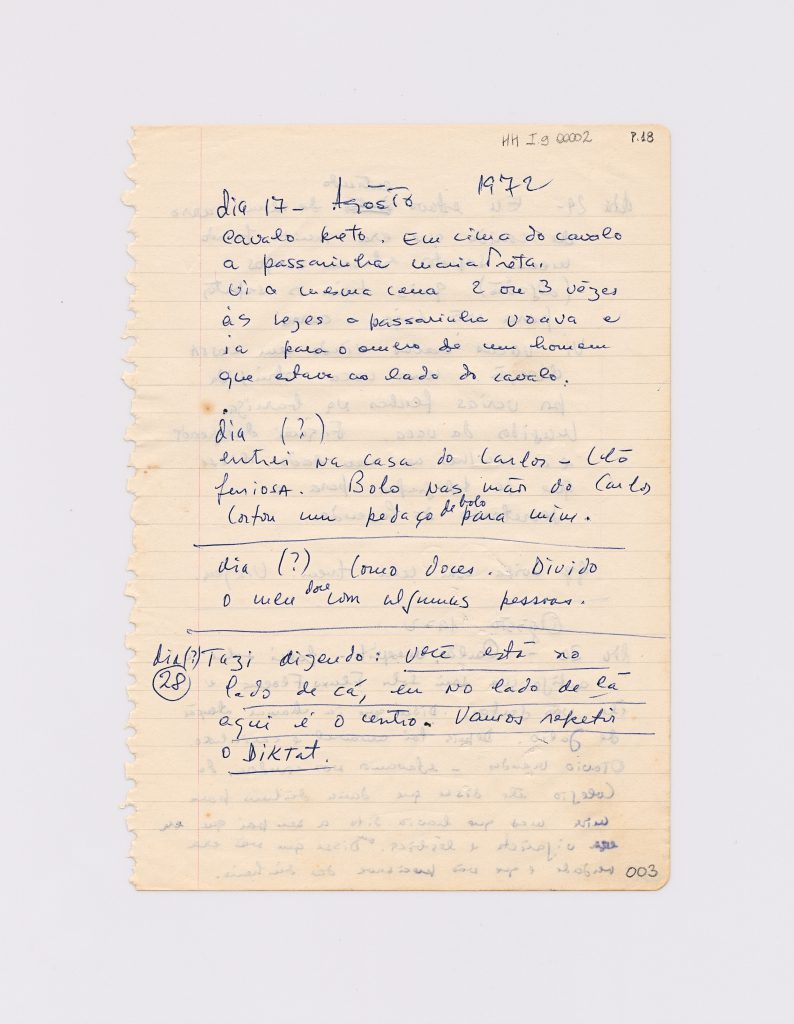 HH I.9 00002 P.18
dia 17 - Agôsto 1972
Cavalo preto. Em cima do cavalo
a passarinha maria Preta.
Vi a mesma cena 2 ou 3 vêzes
às vezes a passarinha voava e
ia para o ombro de um homem
que estava ao lado do cavalo.
dia (?)
entrei na casa do Carlos -
furiosa. Bolo nas mãos do Carlos
Cortou um pedaço de bolo para mim.
dia (?) Como doces. Divido
o meu doce com algumas pessoas.
dia (?) Tazi dizendo: você está no
28 lado de cá, eu no lado de lá
aqui é o centro. Vamos repetir
o Diktat.
003